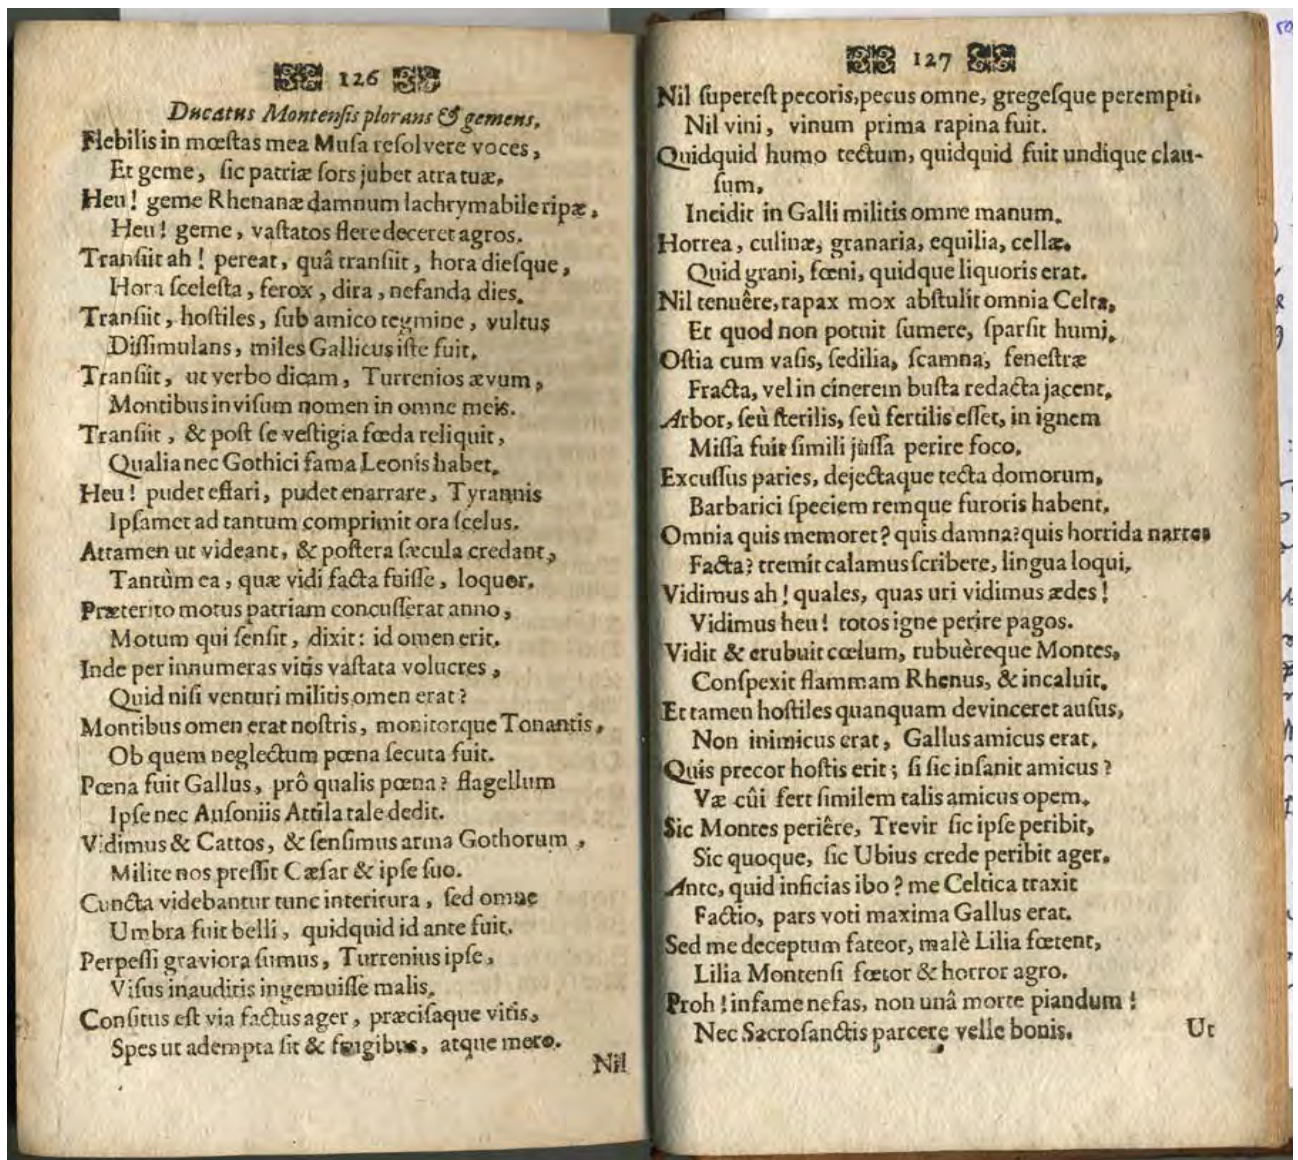 126
Ducatus Montensis plorans & gemens.
Flebilis in mœstas mea Musa resolvere voces,
Et geme, sic patriæ sors jubet atra tuæ.
Heu! geme Rhenanæ damnum lachrymabile ripæ,
Heu! geme, vastatos flere deceret agros.
Transiit ah! pereat, quâ transiit, hora diesque,
Hora scelesta, ferox, dira, nefanda dies.
Transiit, hostiles, sub amico tegmine, vultus
Dissimulans, miles Gallicus iste fuit.
Transiit, ut verbo dicam, Turrenios ævum,
Montibus invisum nomen in omne meis.
Transiit, & post se vestigia fœda reliquit,
Qualia nec Gothici fama Leonis habet.
Heu! pudet effari, pudet enarrare, Tyrannis
Ipsamet ad tantum comprimit ora scelus.
Attamen ut videant, & postera sæcula credant,
Tantùm ea, quæ vidi facta fuisse, loquor.
Præterito motus patriam concusserat anno,
Motum qui sensit, dixit: id omen erit.
Inde per innumeras vitis vastata volucres,
Quid nisi venturi militis omen erat?
Montibus omen erat nostris, monitorque Tonantis,
Ob quem neglectum pœna secuta fuit.
Pœna fuit Gallus, prô qualis pœna? flagellum
Ipse nec Ausoniis Attila tale dedit.
Vidimus & Cattos, & sensimus arma Gothorum,
Milite nos pressit Cæsar & ipse suo.
Cuncta videbantur tunc interitura, sed omne
Umbra fuit belli, quidquid id ante fuit.
Perpessi graviora sumus, Turrenius ipse,
Visus inauditis ingemuisse malis.
Consitus est via factus ager, præcisaque vitis,
Spes ut adempta sit & frugibus, atque mero.
Nil
127
Nil superest pecoris, pecus omne, gregesque perempti.
Nil vini, vinum prima rapina fuit.
Quidquid humo tectum, quidquid fuit undique clau-
sum,
Incidit in Galli militis omne manum.
Horrea, culinæ, granaria, equilia, cellæ.
Quid grani, fœni, quidque liquoris erat.
Nil tenuêre, rapax mox abstulit omnia Celta,
Et quod non potuit sumere, sparsit humi.
Ostia cum vasis, sedilia, scamna, fenestræ
Fracta, vel in cinerem busta redacta jacent.
Arbor, seù sterilis, seù fertilis esset, in ignem
Missa fuit simili jussa perire foco.
Excussus paries, dejectaque tecta domorum,
Barbarici speciem remque furoris habent.
Omnia quis memoret? quis damna? quis horrida narret
Facta? tremit calamus scribere, lingua loqui.
Vidimus ah! quales, quas uri vidimus ædes!
Vidimus heu! totos igne perire pagos.
Vidit & erubuit cœlum, rubuèreque Montes,
Conspexit flammam Rhenus, & incaluit.
Et tamen hostiles quanquam devinceret ausus,
Non inimicus erat, Gallus amicus erat.
Quis precor hostis erit; si sic insanit amicus?
Væ cûi fert similem talis amicus opem.
Sic Montes periêre, Trevir sic ipse peribit,
Sic quoque, sic Ubius crede peribit ager.
Ante, quid inficias ibo? me Celtica traxit
Factio, pars voti maxima Gallus erat.
Sed me deceptum fateor, malè Lilia fœtent,
Lilia Montensi fœtor & horror agro.
Proh! infame nefas, non unâ morte piandum!
Nec Sacrosanctis parcere velle bonis.
Ut